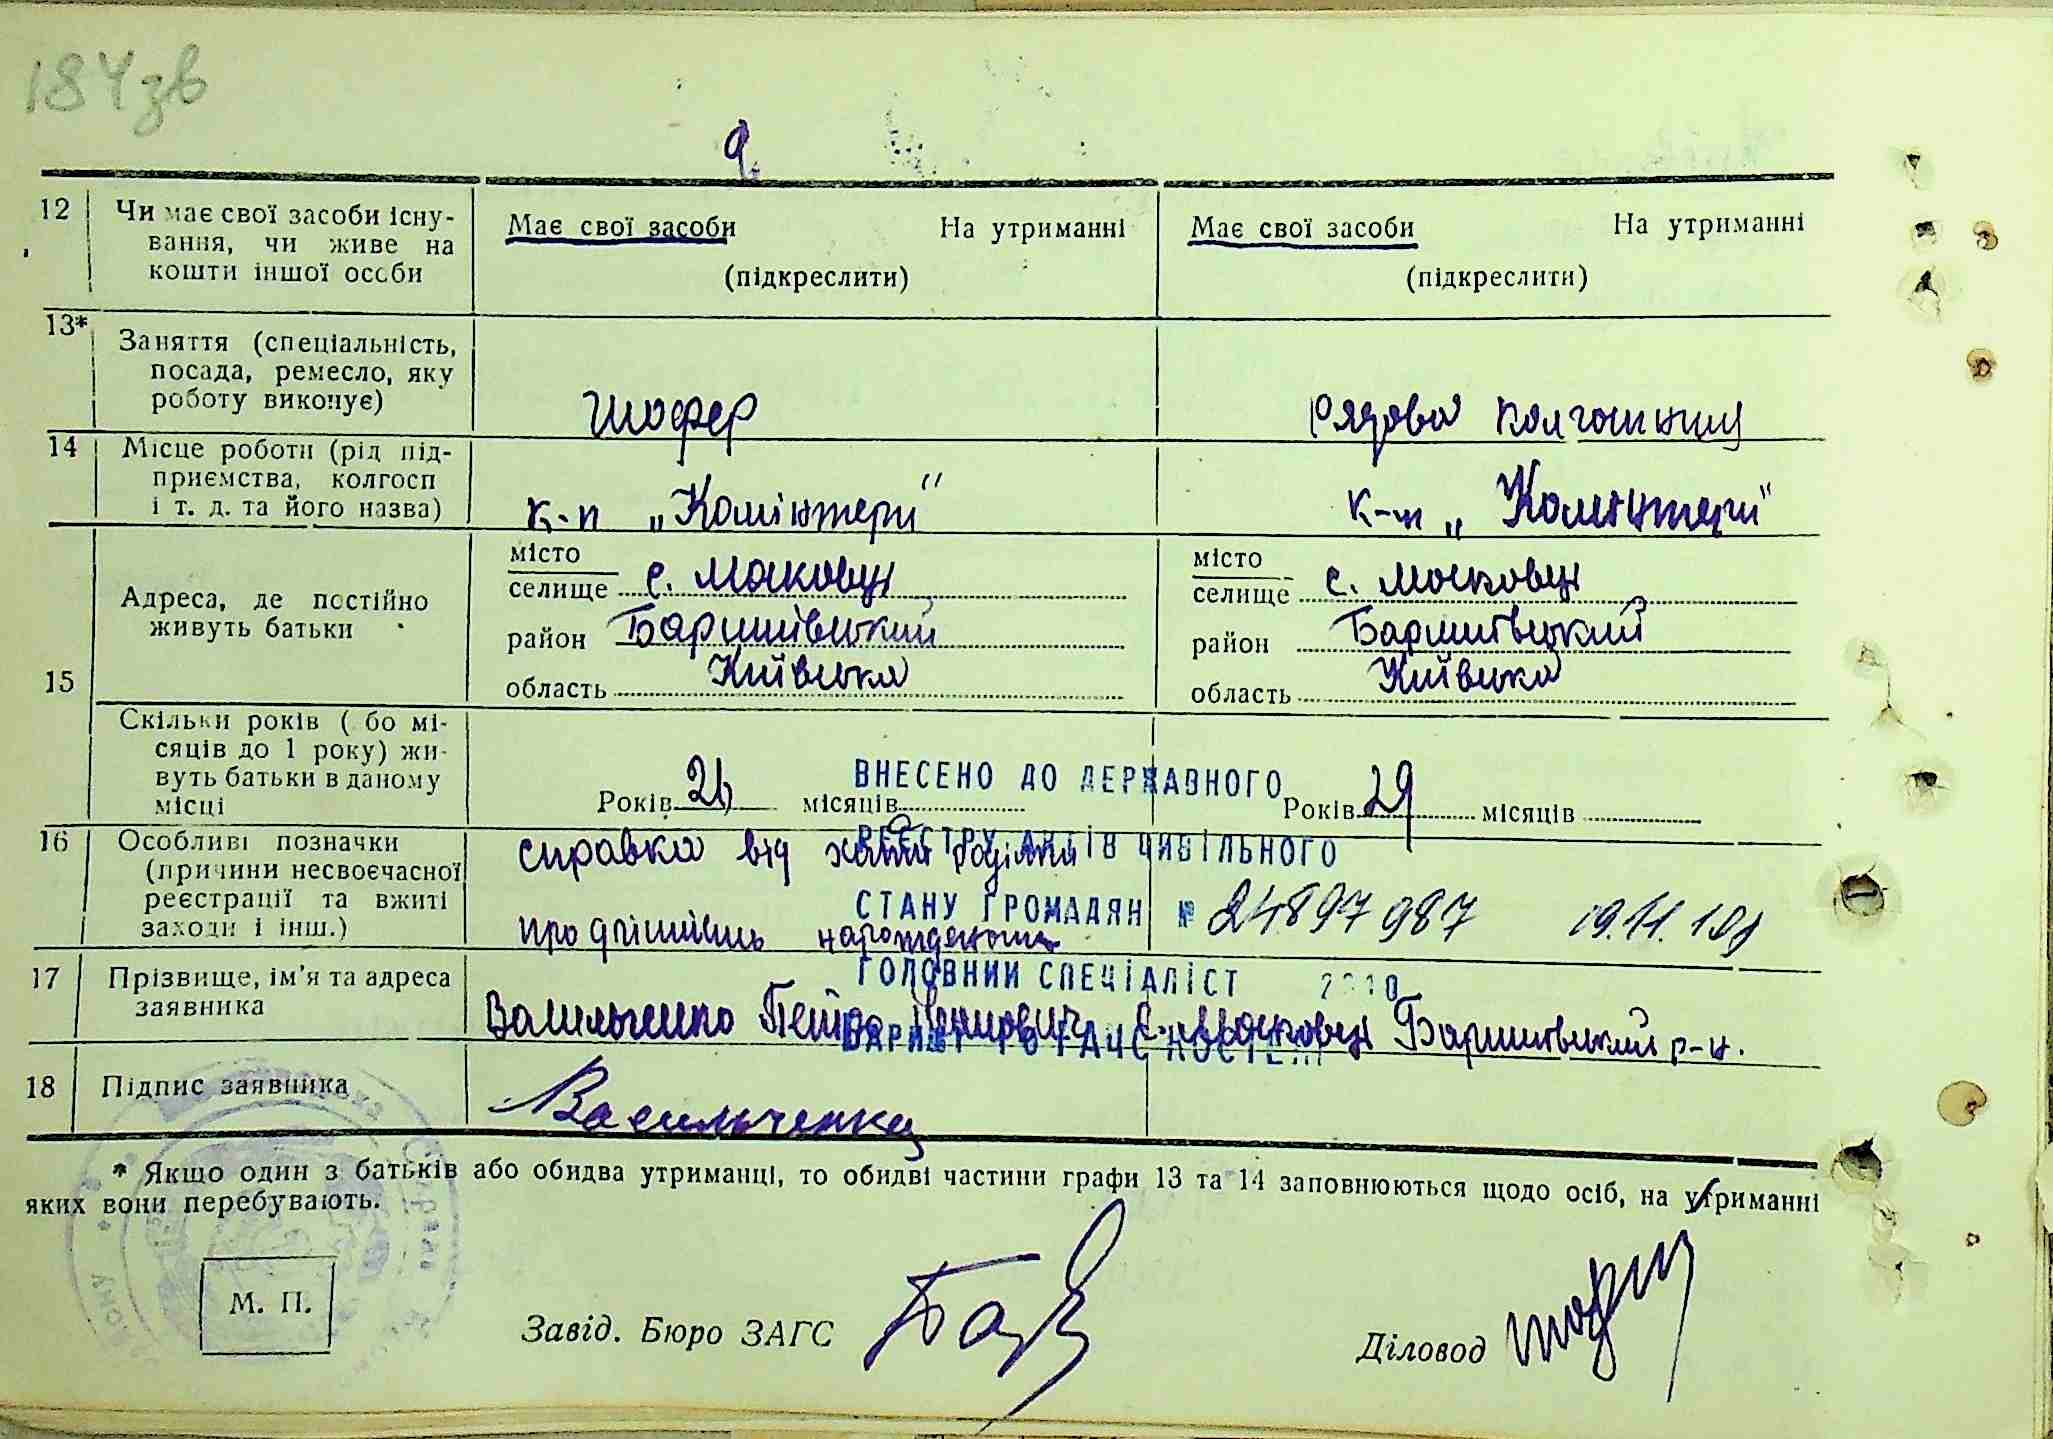 184зв
12 Чи має свої засоби існу- Має свої засоби На утриманні Має свої засоби На утриманні
вання, чи живе на
кошти іншої особи (підкреслити) (підкреслити)
13*
Заняття (спеціальність,
посада, ремесло, яку
роботу виконує) шофер рядова колгоспниц
14 Місце роботи (рід під-
приємства, колгосп
і т. д. та його назва) к-п „Комінтерн" к-п „Комінтерн"
15
Адреса, де постійно
живуть батьки
місто місто
селище с. Масковці селище с. Масковці
район Баришівський район Баришівський
область Київська область Київська
Скільки років ( бо мі-
сяців до 1 року) жи-
вуть батьки в даному
місці Років місяців Років 29 місяців
ВНЕСЕНО ДО ДЕРЖАВНОГО
16 Особливі позначки справка від хати
(причини несвоєчасної РЕЄСТРУ АКТІВ ЦИВІЛЬНОГО
реєстрації та вжиті СТАНУ ГРОМАДЯН № 24897987 19.11.
заходи і інш.) про дійсність народження
17 Прізвище, ім'я та адреса ГОЛОВНИЙ СПЕЦІАЛІСТ 2010
заявника Васильченко Петро с. Масковці Баришівський р-н.
18 Підпис заявника Васильченко
* Якщо один з батьків або обидва утриманці, то обидві частини графи 13 та 14 заповнюються щодо осіб, на утриманні
яких вони перебувають.
М. П.
Завід. Бюро ЗАГС
Діловод